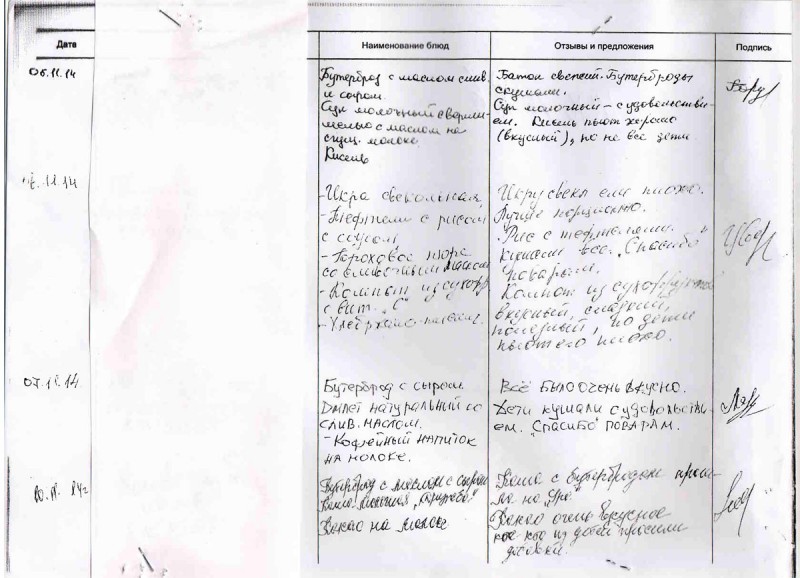 Дата
Наименование блюд
Отзывы и предложения
Подпись
06.11.14
Бутерброд с маслом слив.
и сыром.
Суп молочный с верми-
шелью с маслом на
сгущ. молоке.
Кисель
Батон свежий. Бутерброды
скушали.
Суп молочный – с удовольстви-
ем. Кисель пьют хорошо
(вкусный), но не все дети
11.14
- Икра свекольная,
- Тефтели с рисом
с соусом
- Гороховое пюре
со сливочным маслом
- Компот из сухофр
с вит. "С"
- Хлеб ржано-пшенич.
Икру свекл. ели плохо.
Лучше порционно.
Рис с тефтелями
кушали все. "Спасибо"
поварам.
Компот из сухофруктов
вкусный, сладкий,
полезный, но дети
пьют его плохо.
07.11.14
Бутерброд с сыром.
Омлет натуральный со
слив. маслом.
- Кофейный напиток
на молоке.
Всё было очень вкусно.
Дети кушали с удовольстви-
ем. "Спасибо" поварам.
10.11.14г
Бутерброд с маслом с сыром
Каша "Дружба"
Какао на молоке
Каша с бутербродом прош-
ла на "Ура"
Какао очень вкусное
кое кто из детей просили
добавки.